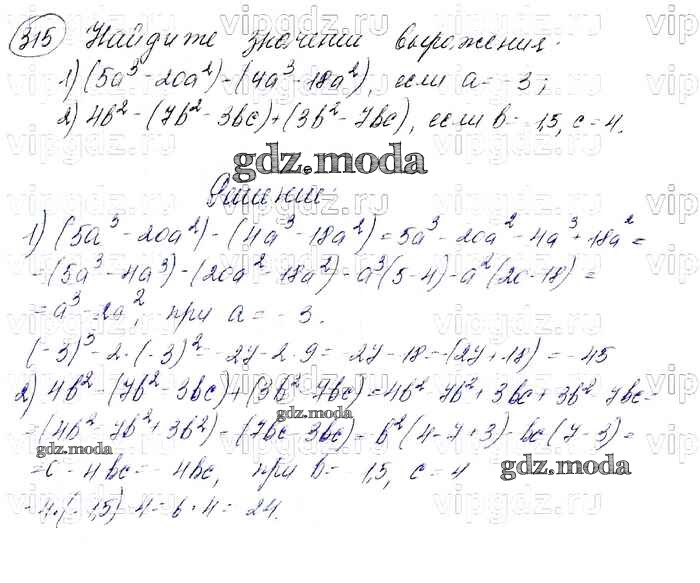 315 Найдите значение выражения.
1) (5a³ - 20a²) - (4a³ - 18a²), если a = -3;
2) 4b² - (7b² - 3bc) + (3b² - 7bc), если b = -1,5, c = 4.
gdz.moda
Решение:
1) (5a³ - 20a²) - (4a³ - 18a²) = 5a³ - 20a² - 4a³ + 18a² =
= (5a³ - 4a³) - (20a² - 18a²) = a³(5 - 4) - a²(20 - 18) =
= a³ - 2a², при a = -3.
(-3)³ - 2·(-3)² = -27 - 2·9 = -27 - 18 = -(27 + 18) = -45
2) 4b² - (7b² - 3bc) + (3b² - 7bc) = 4b² - 7b² + 3bc + 3b² - 7bc =
gdz.moda
= (4b² - 7b² + 3b²) - (7bc - 3bc) = b²(4 - 7 + 3) - bc(7 - 3) =
gdz.moda
= 0 - 4bc = -4bc, при b = -1,5, c = 4
gdz.moda
-4·(-1,5)·4 = 6·4 = 24.
vipgdz.ru